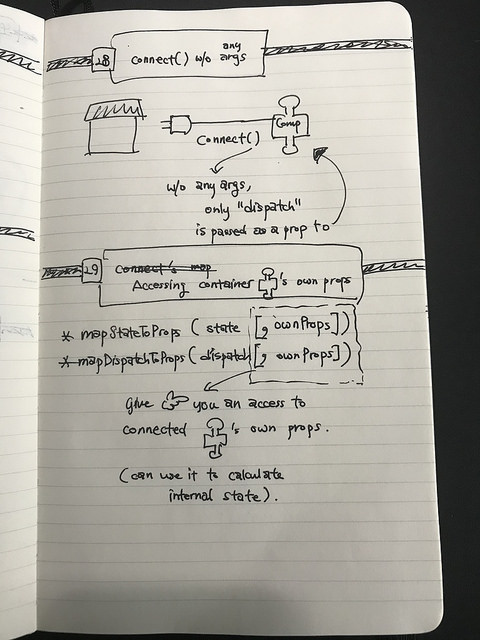 28
connect() w/o any args
Comp
connect()
w/o any args,
only "dispatch"
is passed as a prop to
29
connect's map
Accessing container 's own props
* mapStateToProps (state [, ownProps])
* mapDispatchToProps (dispatch [, ownProps])
Give you an access to
connected 's own props.
(can use it to calculate
internal state).